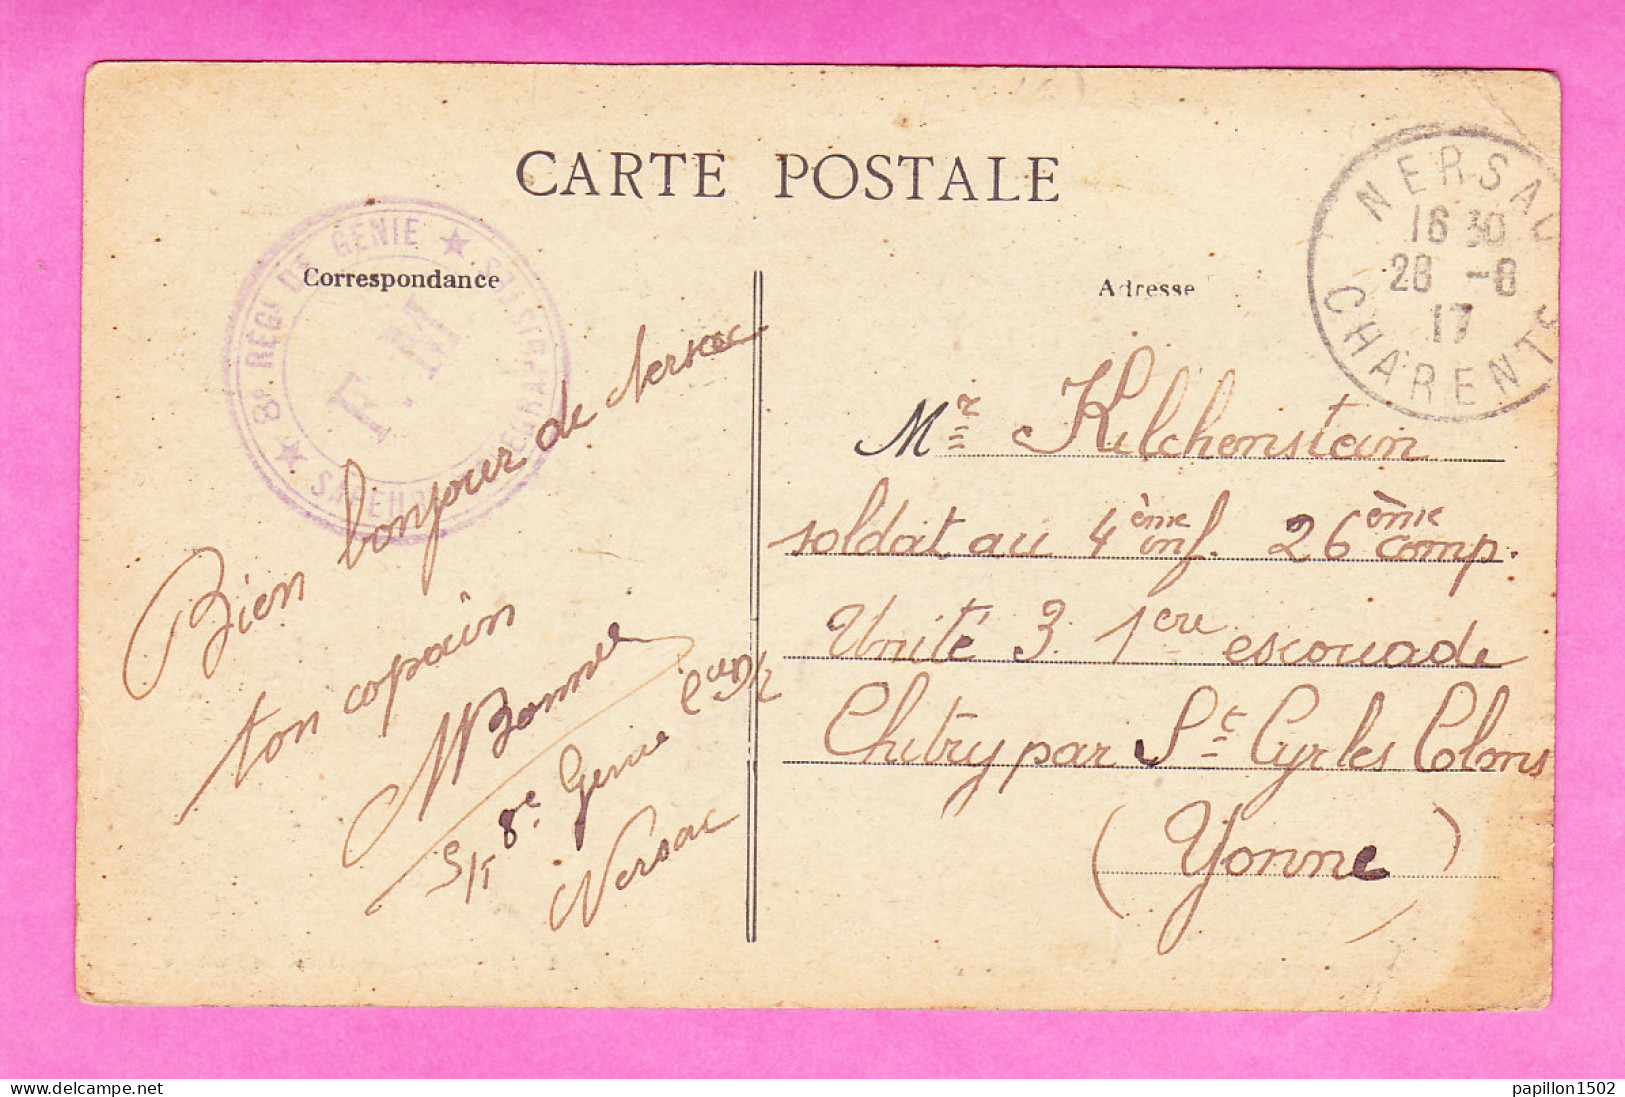 CARTE POSTALE
Correspondance
8e. RÉGt DE GÉNIE ★ SAPEURS TÉLÉGRAPHISTES ★
F.M
Bien bonjour de Nersac
ton copain
Bonne
S/T 8e Genie
Nersac
Adresse
NERSAC
16 30
28 -8
17
CHARENTE
Mr Kilchenstein
soldat au 4ème inf. 26ème comp.
Unité 3. 1ere escouade
Chitry par St Cyr les Colons
(Yonne)
papillon1502
www.delcampe.net